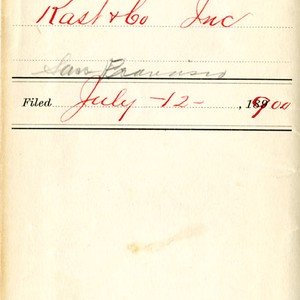 Kast & Co Inc
San Francisco
Filed July -12- , 1900